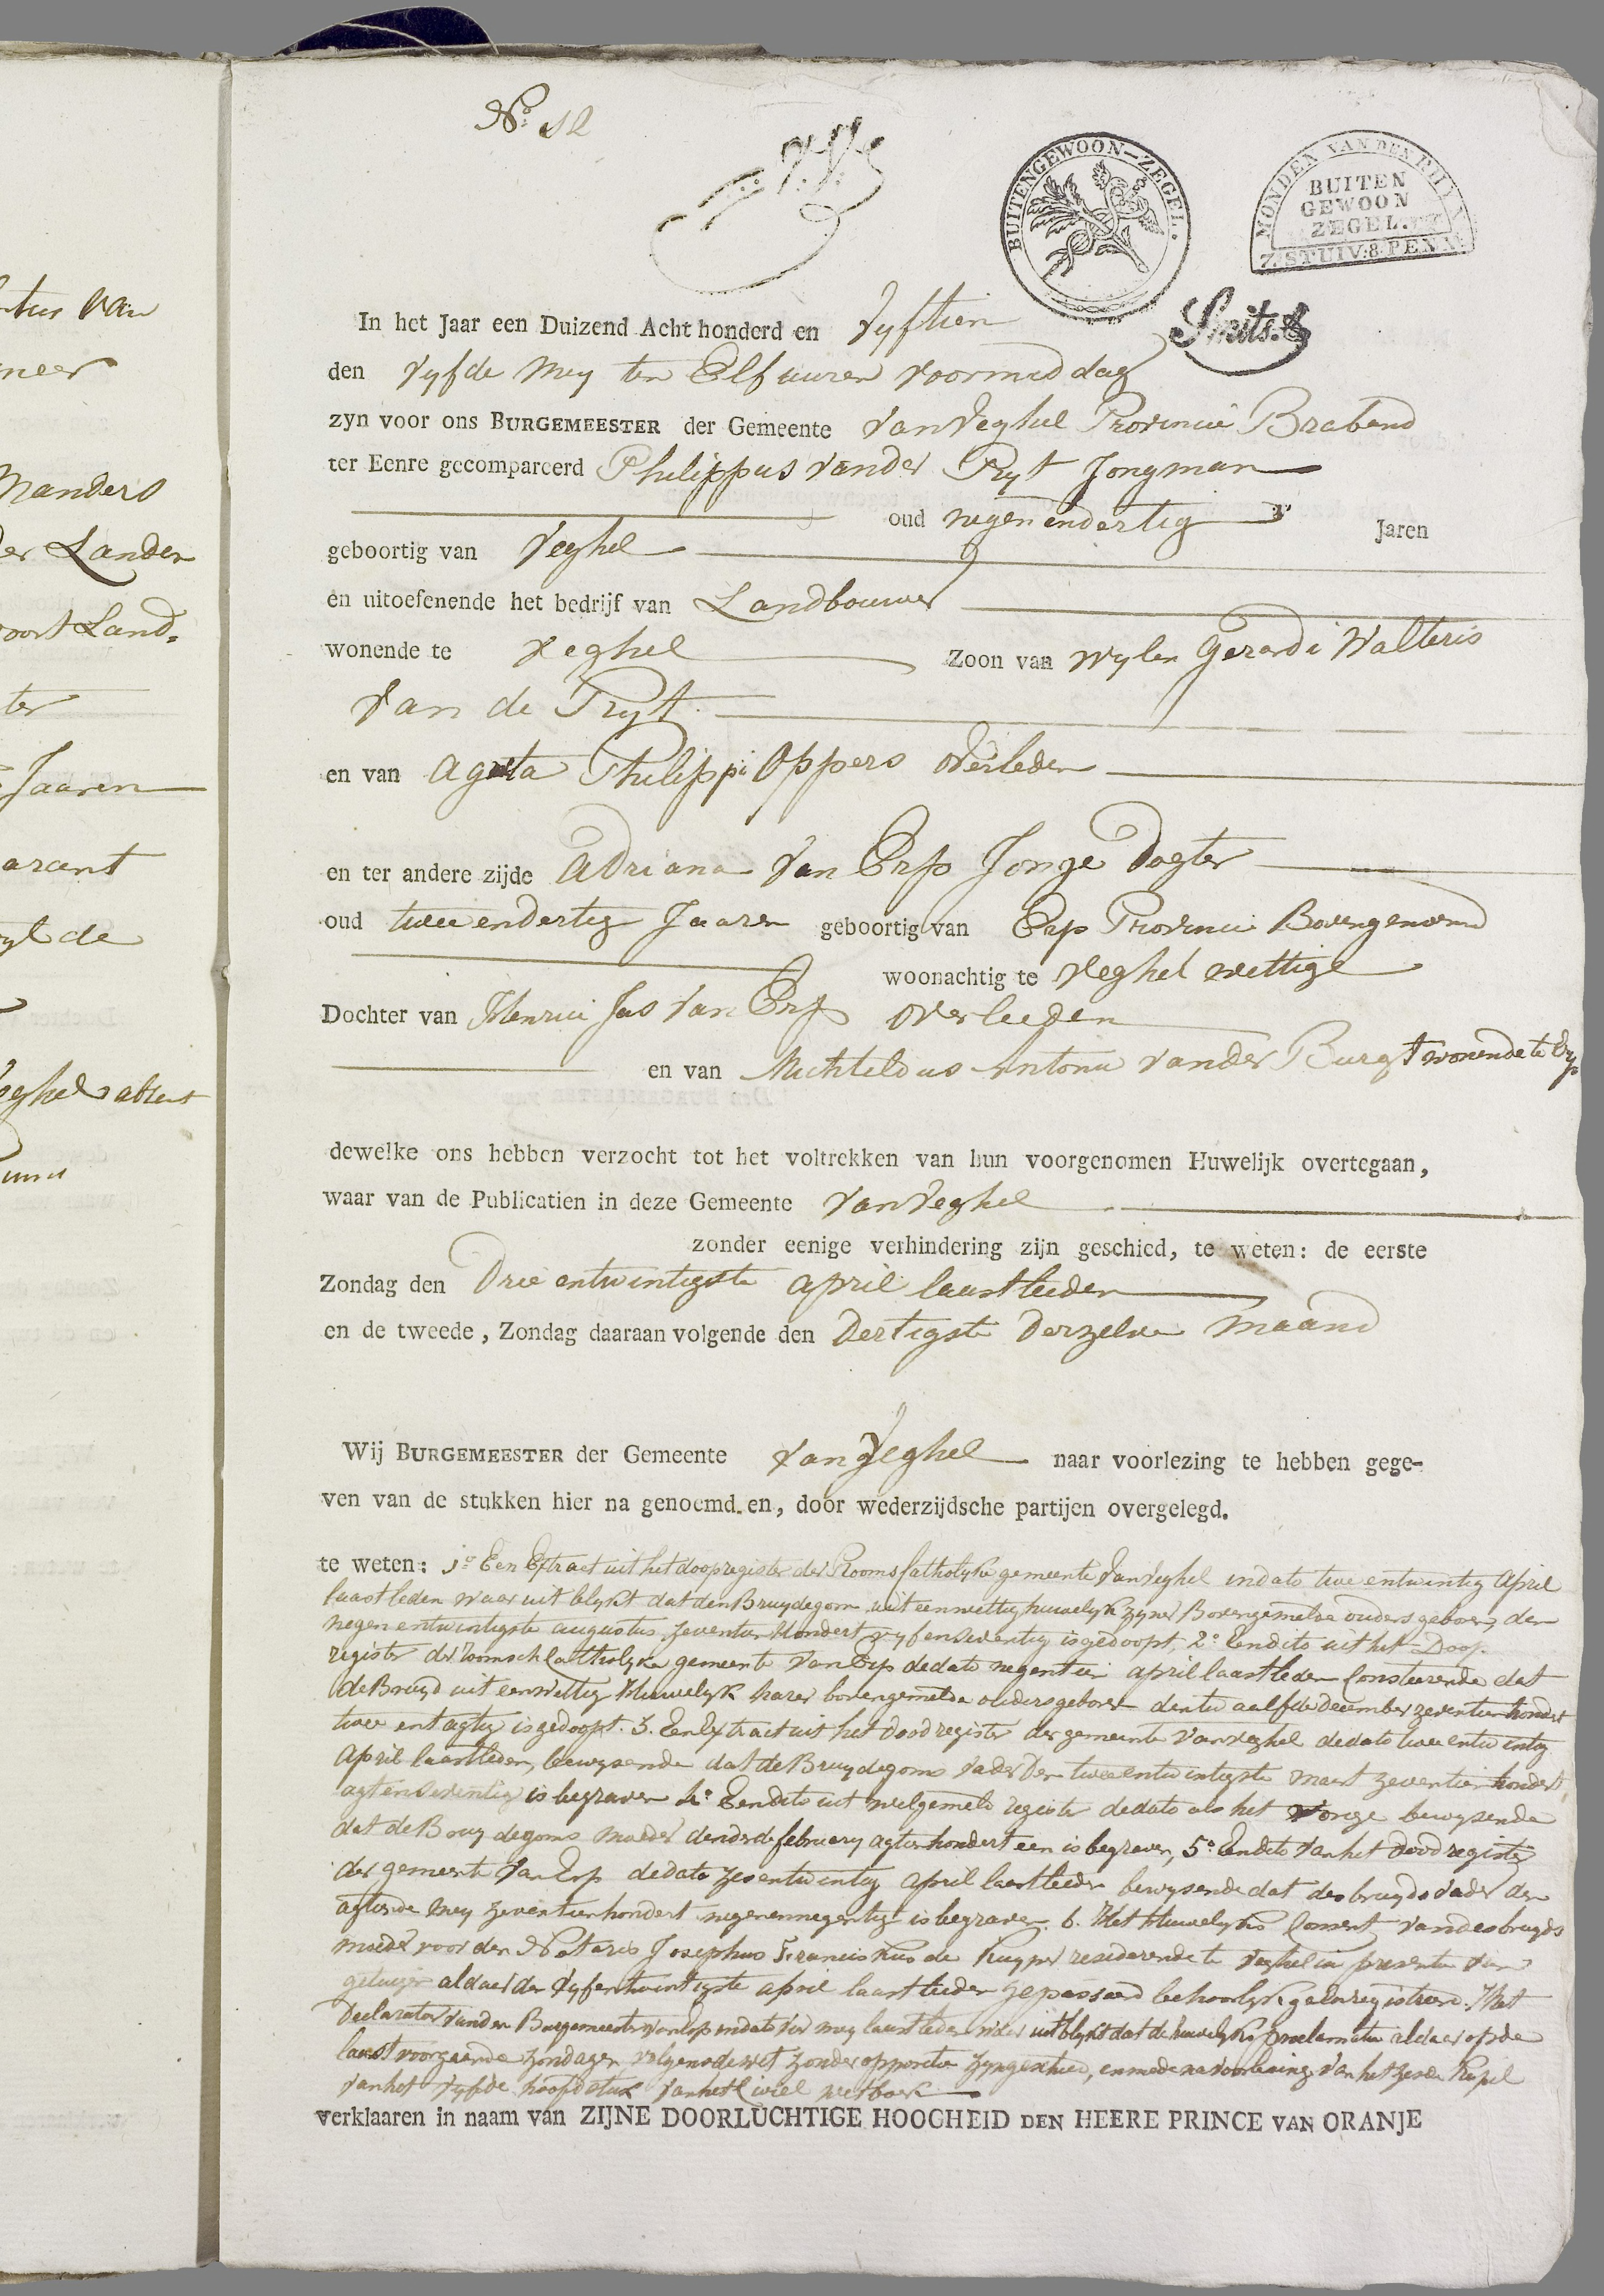 ntus van
neer
Manders
der Landen
oort Land-
ter
Jaaren
arant
yl de
eghel absent
No. 12
BUITENGEWOON-ZEGEL.
MONDEN VAN DEN RHYN
BUITEN
GEWOON
ZEGEL.
7.STUIV:8.PENN:
Smits.
In het Jaar een Duizend Acht honderd en Vyftien
den vyfde Mey ten Elf uuren voormiddag
zyn voor ons BURGEMEESTER der Gemeente van Veghel Provincie Braband
ter Eenre gecompareerd Philippus vander Pryt Jongman
oud negenendertig Jaren
geboortig van Veghel
en uitoefenende het bedrijf van Landbouwer
wonende te Veghel Zoon van wylen Gerardi Walteris
van de Pryt
en van Agata Philippi Oppers overleden
en ter andere zijde Adriana van Erp Jonge Dogter
oud twee endertig Jaaren geboortig van Erp Provincie Bovengenoemd
woonachtig te Veghel wettige
Dochter van Henrici Jas van Erp overleeden
en van Mechteldus Antonii vander Burgt wonende te Erp
dewelke ons hebben verzocht tot het voltrekken van hun voorgenomen Huwelijk overtegaan,
waar van de Publicatien in deze Gemeente van Veghel
zonder eenige verhindering zijn geschied, te weten: de eerste
Zondag den Drie entwintigste april laastleeden
en de tweede, Zondag daaraan volgende den Dertigste Derzelve maand
Wij BURGEMEESTER der Gemeente van Veghel naar voorlezing te hebben gege-
ven van de stukken hier na genoemd.en, door wederzijdsche partijen overgelegd.
te weten: 1o Een Extract uit het doopregister der Rooms Catholyke gemeente van Veghel indato twee entwintig April
laastleden waar uit blykt dat den Bruydegom uit een wettig huwelyk zyner Bovengemelde ouders geboren den
negenentwintigste augustus Zeventien Hondert vyf en Seventig is gedoopt, 2o Een dito uit het Doop
register der roomsch Catholyke gemeente van Erp de dato negentien april laastleden Consteerende dat
de Bruyd uit een wettig Huwelyk harer bovengemelde ouders geboren den twaalfde December zeventien hondert
twee en tagtig is gedoopt. 3. Een Extract uit het Dood register der gemeente van Veghel de dato twee entwintig
April laastleden, bewysende dat de Bruydegoms vader Den tweeentwintigste maart zeventien hondert
agt en Seventig is begraven 4o Een dito uit welgemeld register de dato als het vorige bewysende
dat de Bruydegoms moeder den derde february agtienhondert een is begraven, 5o Een dito van het Dood register
der gemeente van Erp de dato zes entwintig april laastleden bewysende dat des bruyds vader den
agtiende mey zeventienhondert negenennegentig is begraven. 6. Het Huwelyks Consent van des bruyds
moeder voor den Notaris Josephus Franciskus de Kuyper resideerende te Veghel in presentie van
getuigen aldaer den vyfentwintigste april laastleeden gepasseerd behoorlyk geënregistreerd. Het
Declaratoir van den Burgemeester van Erp indato vier mey laastleden waer uit blykt dat de huwelyks proclamatie aldaer op de
laast voorgaande zondagen volgens de wet zonder oppositie zyn geschied, en mede na voorlezing van het zesde Kapit
van het vyfde hoofdstuk van het Civiel wetboek
verklaaren in naam van ZIJNE DOORLUCHTIGE HOOGHEID DEN HEERE PRINCE VAN ORANJE